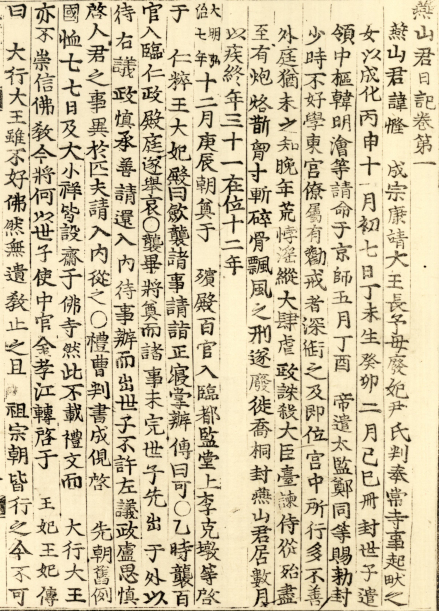 燕山君日記卷第一
燕山君諱㦕 成宗康靖大王長子母廢妃尹氏判奉常寺事起畎之
女以成化丙申十一月初七日丁未生癸卯二月己巳冊封世子遣
領中樞韓明澮等請命于京師五月丁酉 帝遣太監鄭同等賜勅封
少時不好學東宮僚屬有勸戒者深銜之及即位宮中所行多不善
外庭猶未之知晚年荒悖淫縱大肆虐政誅殺大臣臺諫侍從殆盡
至有炮烙斮胷寸斬碎骨飄風之刑遂廢徙喬桐封燕山君居數月
以疾終年三十一在位十二年
大明弘治七年十二月庚辰朝奠于 殯殿百官入臨都監堂上李克墩等啓
于 仁粹王大妃殿曰斂襲諸事請詣正寢堂辦傳曰可○乙時襲百
官入臨仁政殿庭遂擧哀○襲畢將奠而諸事未完世子先出于外以
待右議政愼承善請還入內待事辦而出世子不許左議政盧思愼
啓人君之事異於匹夫請入內從之○禮曹判書成俔啓 先朝舊例
國恤七七日及大小祥皆設齋于佛寺然此不載禮文而 大行大王
亦不崇信佛敎今將何以世子使中官金孝江轉啓于 王妃王妃傳
曰 大行大王雖不好佛然無遺敎止之且 祖宗朝皆行之今不可